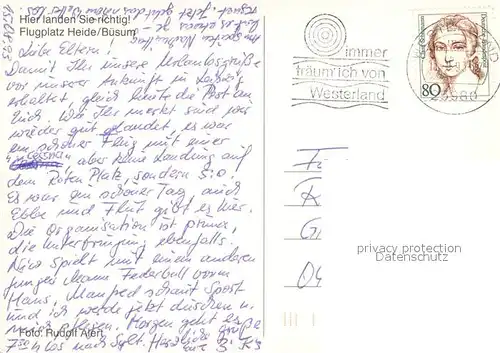 Hier landen Sie richtig!
Flugplatz Heide/Büsum
Liebe Eltern!
Damit Ihr unsere Urlaubsgrüße
vor unserer Ankunft in
erhaltet, gleich heute die Post an
Euch. Wie Ihr merkt sind wir
wieder gut gelandet, es war
ein schöner Flug mit einer
"Cessna" aber keine Landung auf
dem Roten Platz, sondern s.o.
Es war ein schöner Tag, auch
Ebbe und Flut gibt es hier.
Die Organisation ist prima,
die Unterbringung ebenfalls.
Nico spielt mit einem anderen
jungen Mann Federball vorm
Haus, Manfred schaut Sport
und ich werde jetzt duschen u.
Morgen geht es
7 30 h los nach Sylt. Herzliche Grüße
Foto: Rudolf Alert
immer
träum' ich von
Westerland
80
Deutsche Bundespost
privacy protection
Datenschutz